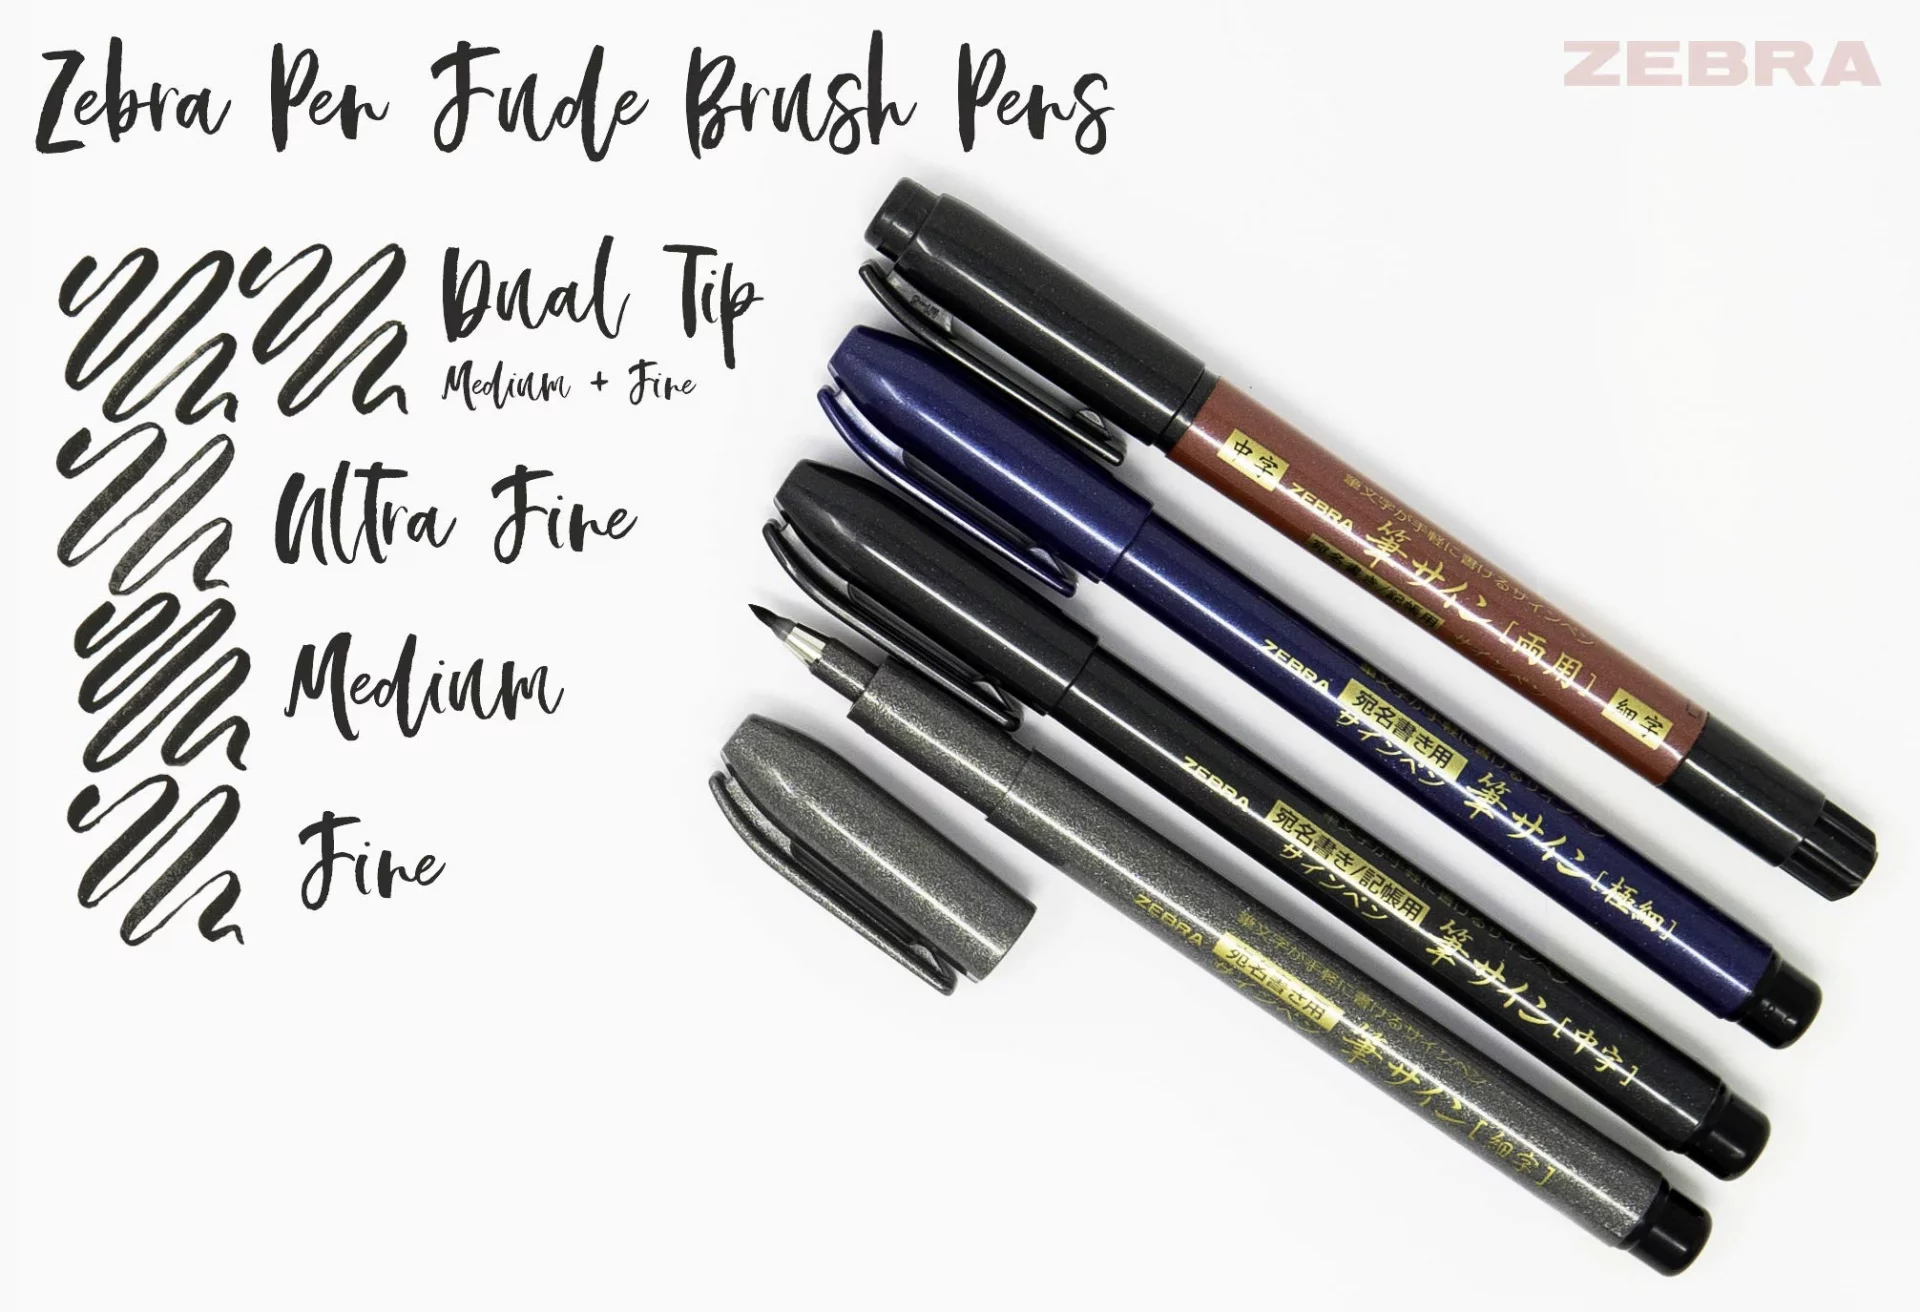 Zebra Pen Fude Brush Pens
ZEBRA
Dual Tip
Medium + Fine
Ultra Fine
Medium
Fine
中字
ZEBRA
筆文字が手軽に書けるサインペン
宛名書き/記帳用
サインペン
筆サイン[両用]
細字
ZEBRA
宛名書き用
サインペン
筆サイン[極細]
ZEBRA
宛名書き/記帳用
サインペン
筆サイン[中字]
ZEBRA
筆文字が手軽に書けるサインペン
宛名書き用
サインペン
筆サイン[細字]